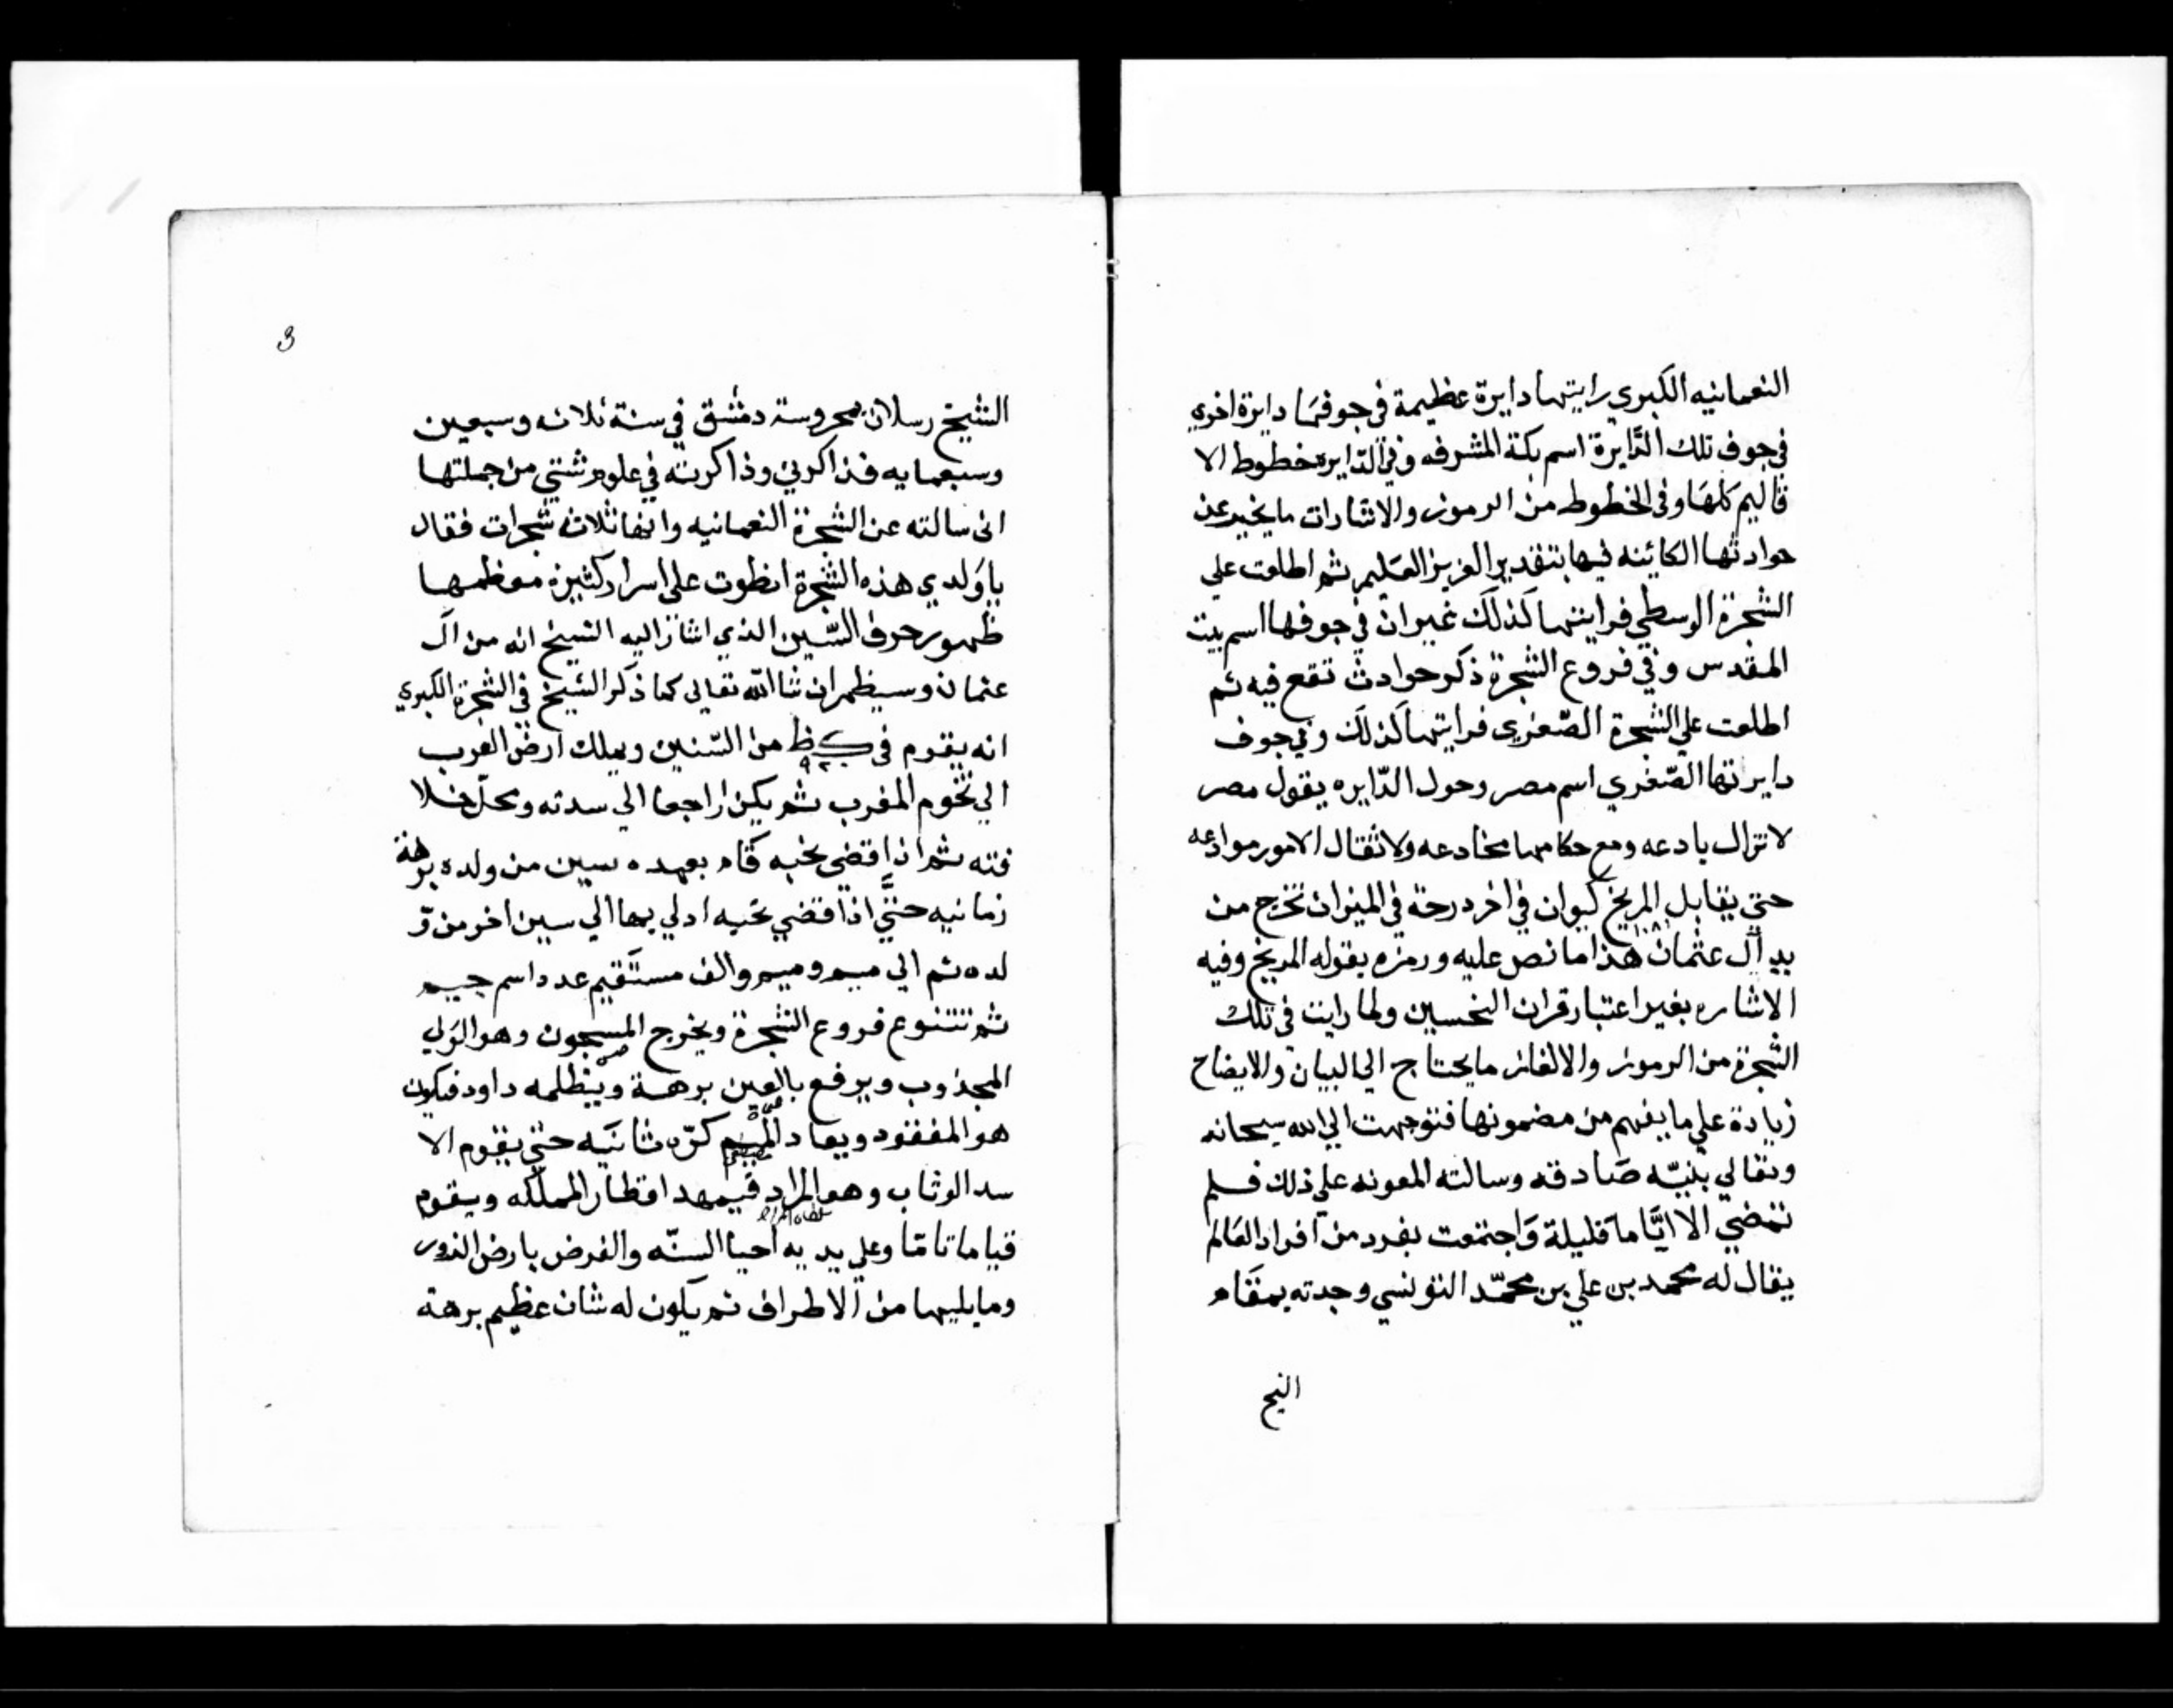 النعمانيه الكبري رايتها دايرة عظيمة في جوفها دايرة اخري
في جوف تلك الدَّايرة اسم مكة المشرفه وفي الدّايره خطوط الا
قاليم كلهَا وفي الخطوط من الرموز والاشارات ما يخبر عن
حوادثها الكائنه فيها بتقدير العزيز العَليم ثم اطلعت علي
الشجرة الوسطي فرايتها كذلك غير ان في جوفها اسم بيت
المقدس وفي فروع الشجرة ذكر حوادث تقع فيه ثم
اطلعت علي الشجرة الصّغري فرايتها كذلك وفي جوف
دايرتها الصّغري اسم مصر وحول الدّايره يقول مصر
لا تزال بادعه ومع حكامها مخادعه ولاثقال الامور موادعه
حتي يقابل المريخ كيوان في اخر درجة في الميزان تخرج من
يد آل عثمان هذا ما نص عليه ورمزه بقوله المريخ وفيه
الاشاره بغير اعتبار قران النحسين ولما رايت في تلك
الشجرة من الرموز والالغاز ما يحتاج الي البيان والايضاح
زيادة علي ما يفهم من مضمونها فتوجهت الي الله سبحانه
وتعالي بنيّه صَادقه وسالته المعونه علي ذلك فلم
تمضي الا ايَّاما قليلة وَاجتمعت بفرد من افراد العَالم
يقال له محمد بن علي بن محمّد التونسي وجدته بمقَام
الشيخ
3
الشيخ رسلان بمحروسة دمشق في سنة ثلاث وسبعين
وسبعمايه فذاكرني وذاكرته في علوم شتي من جملتها
اني سالته عن الشجرة النعمانيه وانها ثلاث شجرات فقال
ياوَلدي هذه الشجرة انطوت علي اسرار كثيرة معظمها
ظهور حرف السّين الذي اشار اليه الشيخ انه من آل
عثمان وسيظهر ان شا اللّه تعالي كما ذكر الشيخ في الشجرة الكبري
انه يقوم في كظ من السّنين ويملك ارض العرب
٩٢٠
الي تخوم المغرب ثم يكن راجعا الي سدته ومحلّ خلا
فته ثم اذا قضي نحبه قَام بعهده سين من ولده برهة
زمانيه حتَّي اذا قضي نحبه ادلي بها الي سين اخر من وّ
لده ثم الي ميم وميم والف مستَقيم عدد اسم جيم
ثم تتنوع فروع الشجرة ويخرج المسجون وهو الوَلي
المجذوب ويرفع بالعين برهة ويَنظلمه داود فيكون
هو المفقود ويعاد الميم كرّه ثانيَه حتي يقوم الا
سد الوثاب وهو المراد فيمهد اقطار المملكه ويقوم
قياما تامّا وعلي يديه احيا السنّه والفرض بارض الزور
وما يليها من الاطراف ثم يكون له شان عظيم برهة